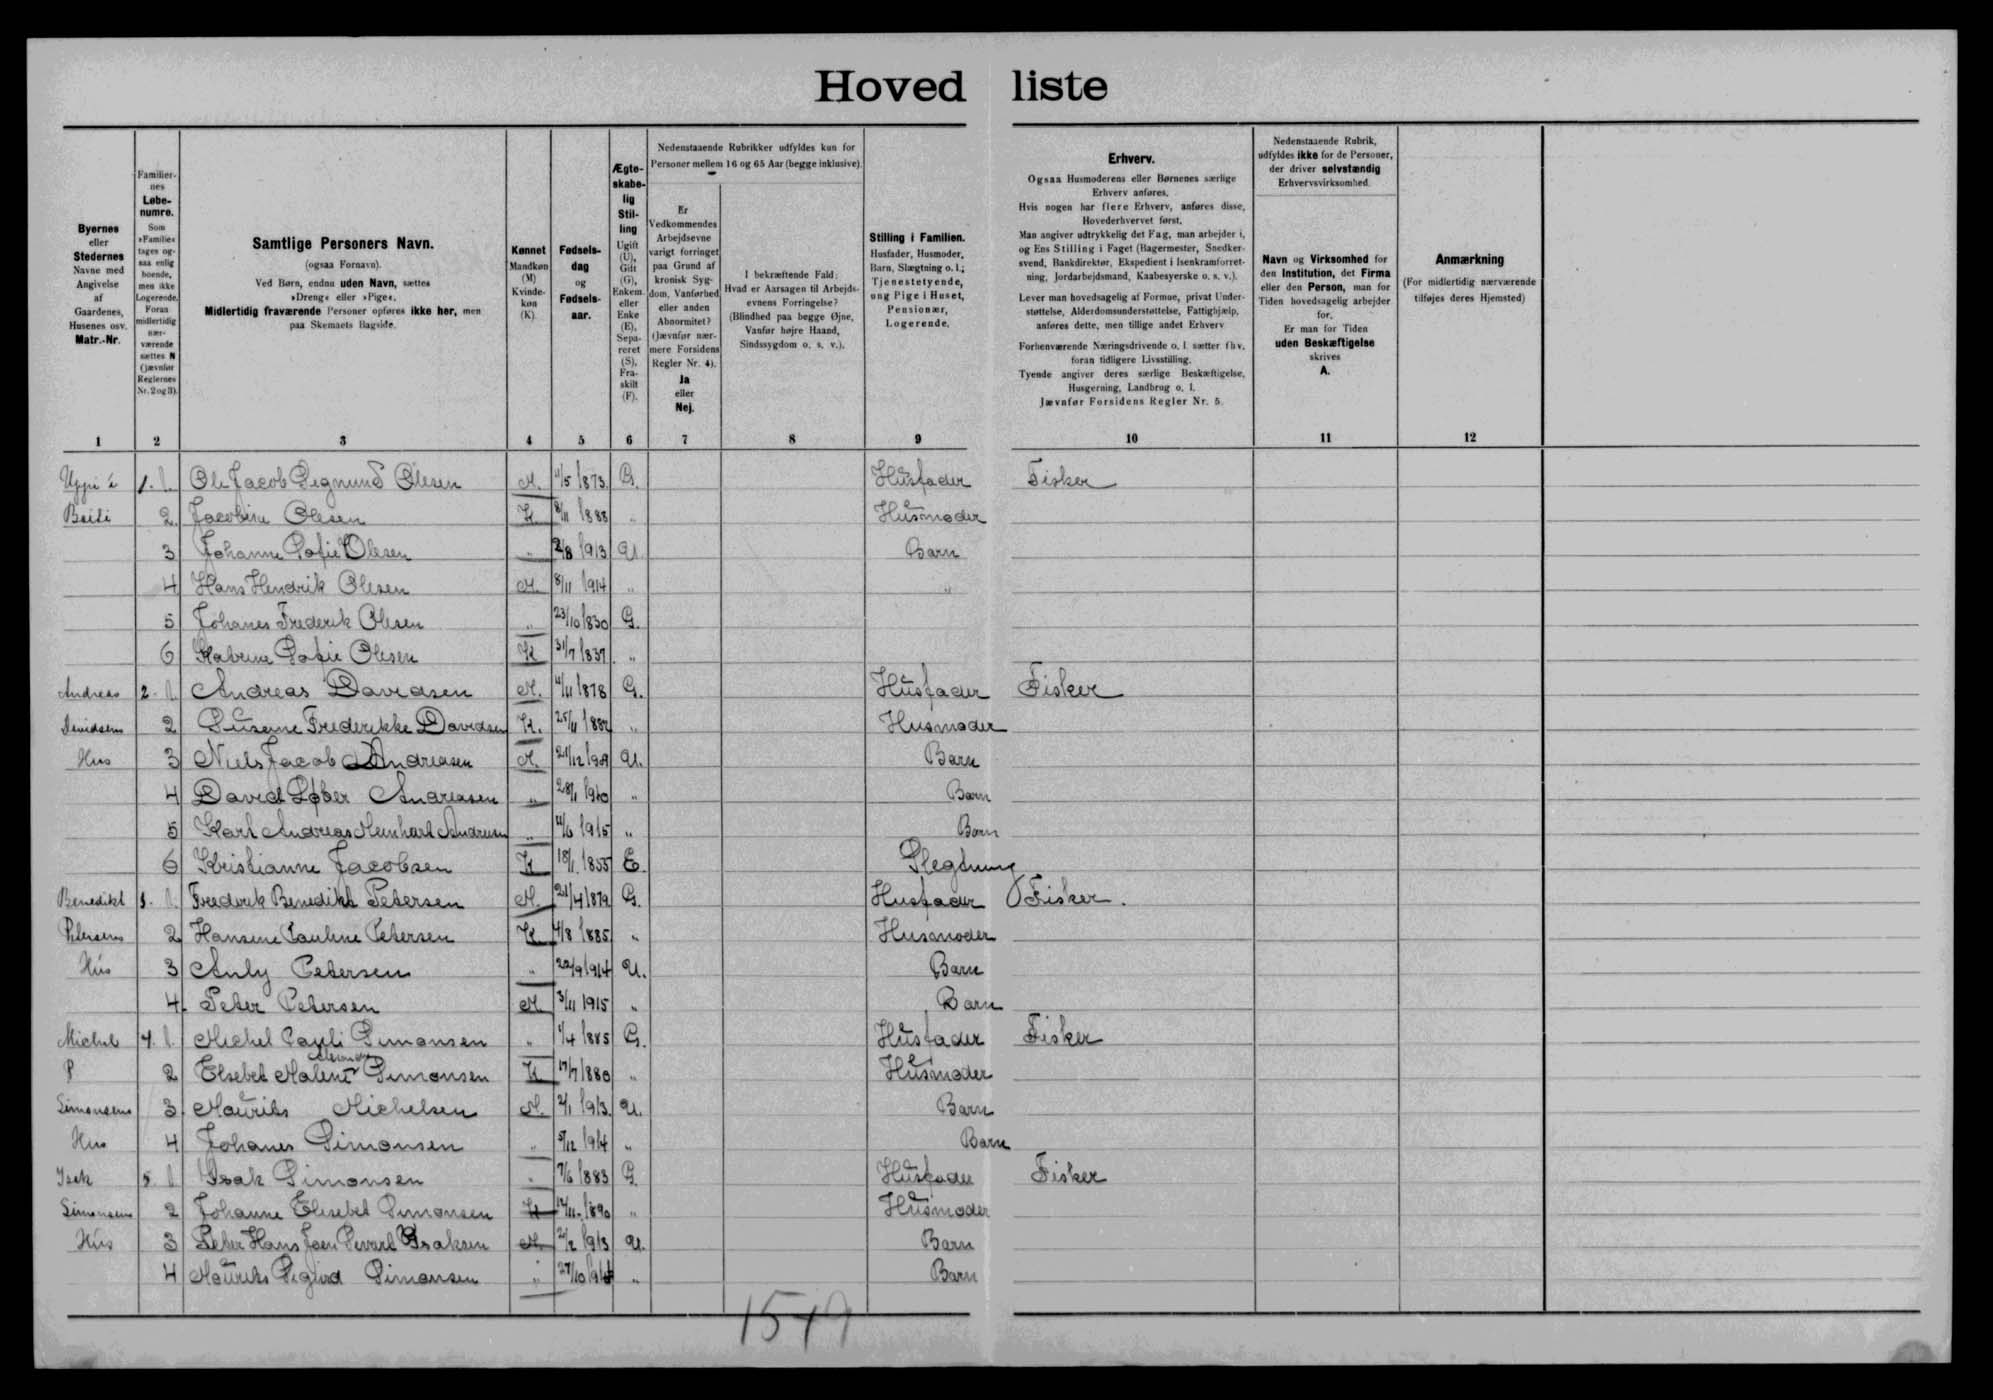 Hoved liste
Byernes eller Stedernes Navne med Angivelse af Gaardenes, Husenes osv. Matr.-Nr.
Familiernes Løbenumre. Som »Familie« tages ogsaa enlig boende, men ikke Logerende. Foran midlertidig nærværende sættes N (jævnfør Reglernes Nr. 2 og 3).
Samtlige Personers Navn. (ogsaa Fornavn). Ved Børn, endnu uden Navn, sættes »Dreng« eller »Pige«. Midlertidig fraværende Personer opføres ikke her, men paa Skemaets Bagside.
Kønnet Mandkøn (M) Kvindekøn (K)
Fødselsdag og Fødselsaar.
Ægteskabelig Stilling Ugift (U), Gift (G), Enkem. eller Enke (E), Separeret (S), Fraskilt (F).
Nedenstaaende Rubrikker udfyldes kun for Personer mellem 16 og 65 Aar (begge inklusive).
Er Vedkommendes Arbejdsevne varigt forringet paa Grund af kronisk Sygdom, Vanførhed eller anden Abnormitet? (Jævnfør nærmere Forsidens Regler Nr. 4). Ja eller Nej.
I bekræftende Fald: Hvad er Aarsagen til Arbejdsevnens Forringelse? (Blindhed paa begge Øjne, Vanfør højre Haand, Sindssygdom o. s. v.).
Stilling i Familien. Husfader, Husmoder, Barn, Slægtning o. l.; Tjenestetyende, ung Pige i Huset, Pensionær, Logerende.
Erhverv.
Ogsaa Husmoderens eller Børnenes særlige Erhverv anføres.
Hvis nogen har flere Erhverv, anføres disse, Hovederhvervet først.
Man angiver udtrykkelig det Fag, man arbejder i, og Ens Stilling i Faget (Bagermester, Snedkersvend, Bankdirektør, Ekspedient i Isenkramforretning, Jordarbejdsmand, Kaabesyerske o. s. v.).
Lever man hovedsagelig af Formue, privat Understøttelse, Alderdomsunderstøttelse, Fattighjælp, anføres dette, men tillige andet Erhverv
Forhenværende Næringsdrivende o. l. sætter fhv. foran tidligere Livsstilling.
Tyende angiver deres særlige Beskæftigelse, Husgerning, Landbrug o. l.
Jævnfør Forsidens Regler Nr. 5.
Nedenstaaende Rubrik, udfyldes ikke for de Personer, der driver selvstændig Erhvervsvirksomhed.
Navn og Virksomhed for den Institution, det Firma eller den Person, man for Tiden hovedsagelig arbejder for.
Er man for Tiden uden Beskæftigelse skrives A.
Anmærkning (For midlertidig nærværende tilføjes deres Hjemsted)
1 2 3 4 5 6 7 8 9 10 11 12
Uppi á 1. 1. Ole Jacob Segmund Olesen M. 11/5 1873. G. Husfader Fisker
2. Jacobine Olesen K. 8/11 1888 " Husmoder
3 Johanne Sofie Olesen " 2/8 1913 U. Barn
4 Hans Hendrik Olesen M. 8/11 1914 " "
5 Johanes Frederik Olesen " 23/10 1830 G.
6 Katrine Sofie Olesen K 31/7 1837. "
Andreas 2. 1. Andreas Davidsen M. 11/11 1878 G. Husfader Fisker
Davidsens 2 Susanne Frederikke Davidsen K. 25/11 "  Husmoder
Hus 3 Niels Jacob Andreasen M. 21/12 1909 U. Barn
4 David Andreasen " 28/1 1910 " Barn
5 Karl Andreas Meinhart Andreasen " 1915 " Barn
6 Kristianne Jacobsen K 18/1 1855 E. Slegtning
Benedikt 3. 1. Frederik Benedikt Petersen M. 21/4 1879 G. Husfader Fisker.
Petersens 2 Hansine Pauline Petersen K 4/8 1885 " Husmoder
Hús 3 Anly Petersen " 22/9 1914 U. Barn
4. Peter Petersen M 3/11 1915 " Barn
Michel 4. 1. Michel Pauli Simonsen " 1/4 1885 G. Husfader Fisker
P 2 Elsebet Malene Simonsen K 17/7 1880 " Husmoder
Simonsens 3. Mourits Michelsen M. 2/1 1913. U. Barn
Hus 4 Johanes Simonsen " 5/12 1914 " Barn
Isak 5. 1 Isak Simonsen " 7/6 1883 G. Husfader Fisker
Simonsens 2 Johanne Elisebet Simonsen K 17/11. 1890 " Husmoder
Hús 3 Peter Hans Isaksen M. 2/2 1913 U. Barn
4 Mouriks Simonsen " 27/10 " Barn
1549